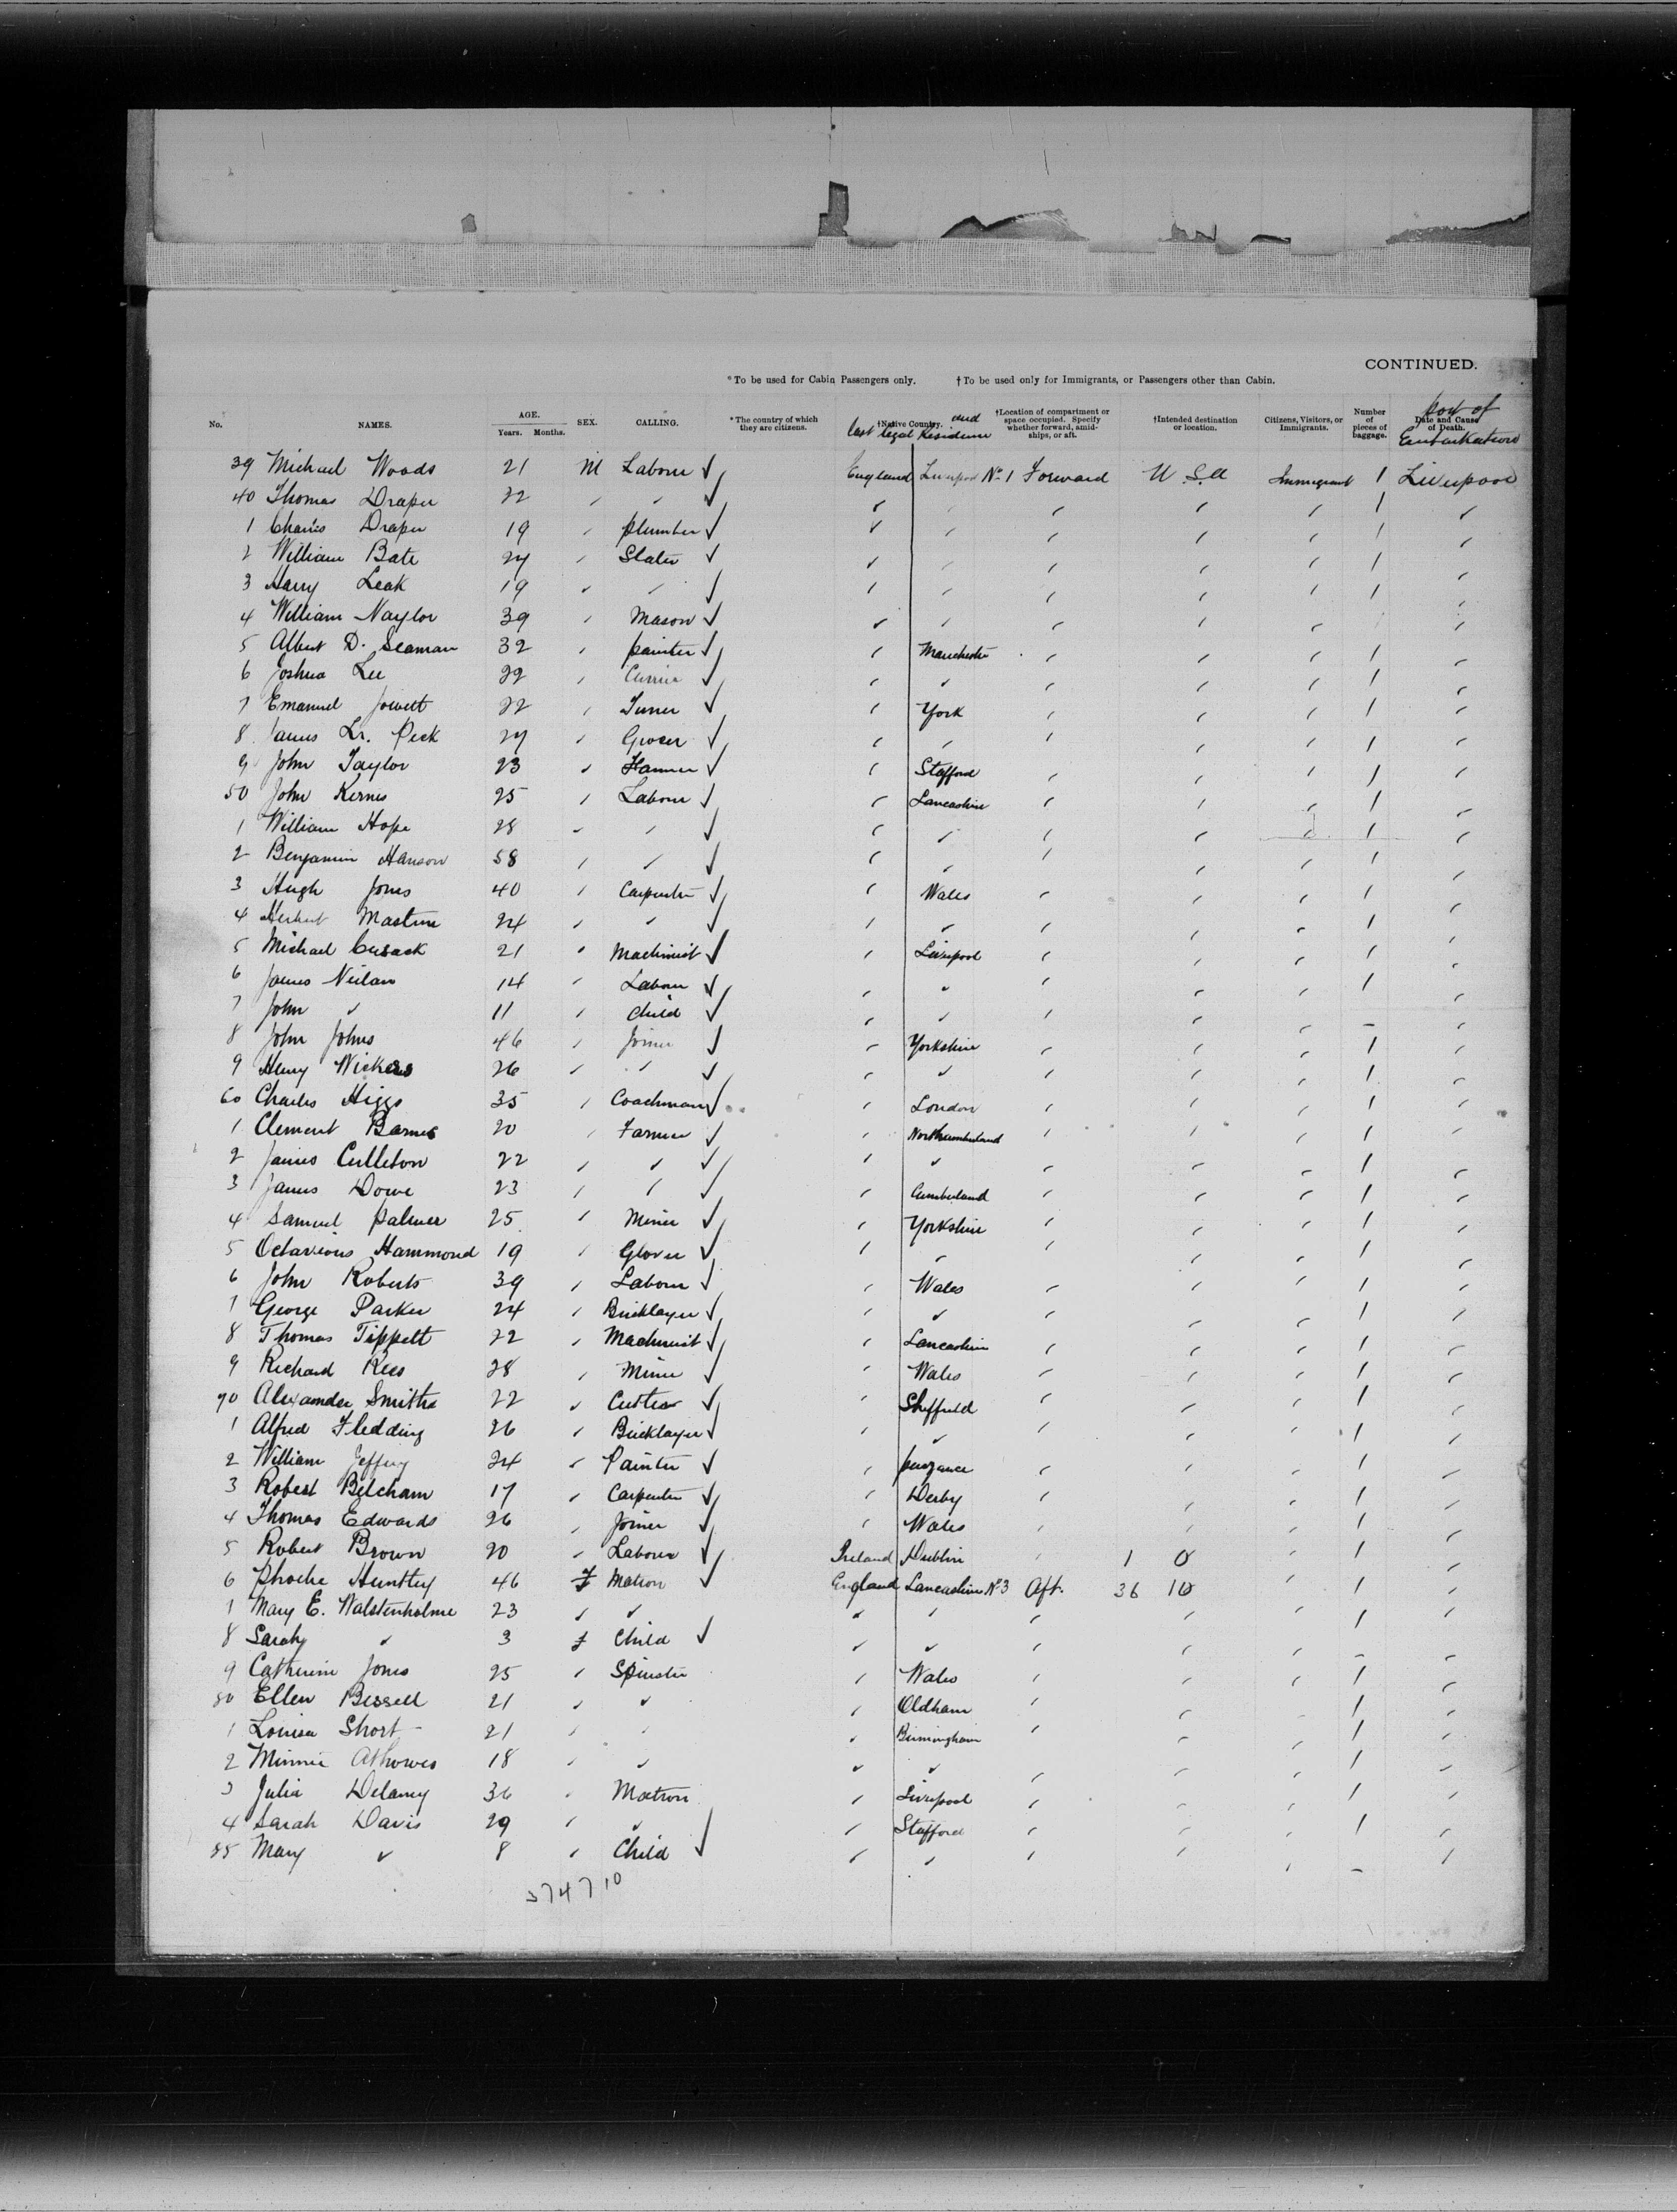 CONTINUED.
*To be used for Cabin Passengers only. †To be used only for Immigrants, or Passengers other than Cabin.
No. NAMES. AGE. Years. Months. SEX. CALLING. *The country of which they are citizens. †Native Country. and last legal Residence †Location of compartment or space occupied. Specify whether forward, amidships, or aft. †Intended destination or location. Citizens, Visitors, or Immigrants. Number of pieces of baggage. Date and Cause of Death. Port of Embarkation
39 Michael Woods 21 M Labourer England Liverpool No 1 Forward U.S.A Immigrant 1 Liverpool
40 Thomas Draper 22 1
1 Charles Draper 19 plumber 1
2 William Bate 24 Slater 1
3 Harry Leak 19 1
4 William Naylor 39 Mason
5 Albert D. Seaman 32 painter Manchester 1
6 Joshua Lee 22 1
7 Emanuel Jowett 22 Turner York 1
8 James Peck 24 Grocer 1
9 John Taylor 23 Farmer Stafford 1
50 John Kernes 25 Labourer Lancashire 1
1 William Hope 28 1
2 Benjamin Hanson 58 1
3 Hugh Jones 40 Carpenter Wales 1
4 Herbert 24 1
5 Michael Cusack 21 Machinist Liverpool 1
6 James Neilan 14 Labourer 1
7 John 11 Child –
8 John Johns 46 Joiner Yorkshire 1
9 Henry Wickers 26 1
60 Charles Higgs 35 Coachman London 1
1 Clement Barnes 20 Farmer Northumberland 1
2 James Culleton 22 1
3 James Dowe 23 Cumberland 1
4 Samuel Palmer 25 Miner Yorkshire 1
5 Octavious Hammond 19 Glover 1
6 John Roberts 39 Labourer Wales 1
7 George Parker 24 Bricklayer 1
8 Thomas Tippett 22 Machinist Lancashire 1
9 Richard Rees 28 Miner Wales 1
70 Alexander Smith 22 Cutler Sheffield 1
1 Alfred Fledding 26 Bricklayer 1
2 William Jeffery 24 Painter penzance 1
3 Robert Belcham 17 Carpenter Derby 1
4 Thomas Edwards 26 Joiner Wales 1
5 Robert Brown 20 Labourer Ireland Dublin 1 0 1
6 Phoebe Huntley 46 F Matron England Lancashire No 3 Aft. 36 10 1
7 Mary E. Walstenholme 23 1
8 Sarah 3 F Child –
9 Catherine Jones 25 Spinster Wales 1
80 Ellen Bissell 21 Oldham 1
1 Louisa Short 21 Birmingham 1
2 Minnie 18 1
3 Julia Delaney 36 Matron Liverpool 1
4 Sarah Davis 29 Stafford 1
85 Mary 8 Child –